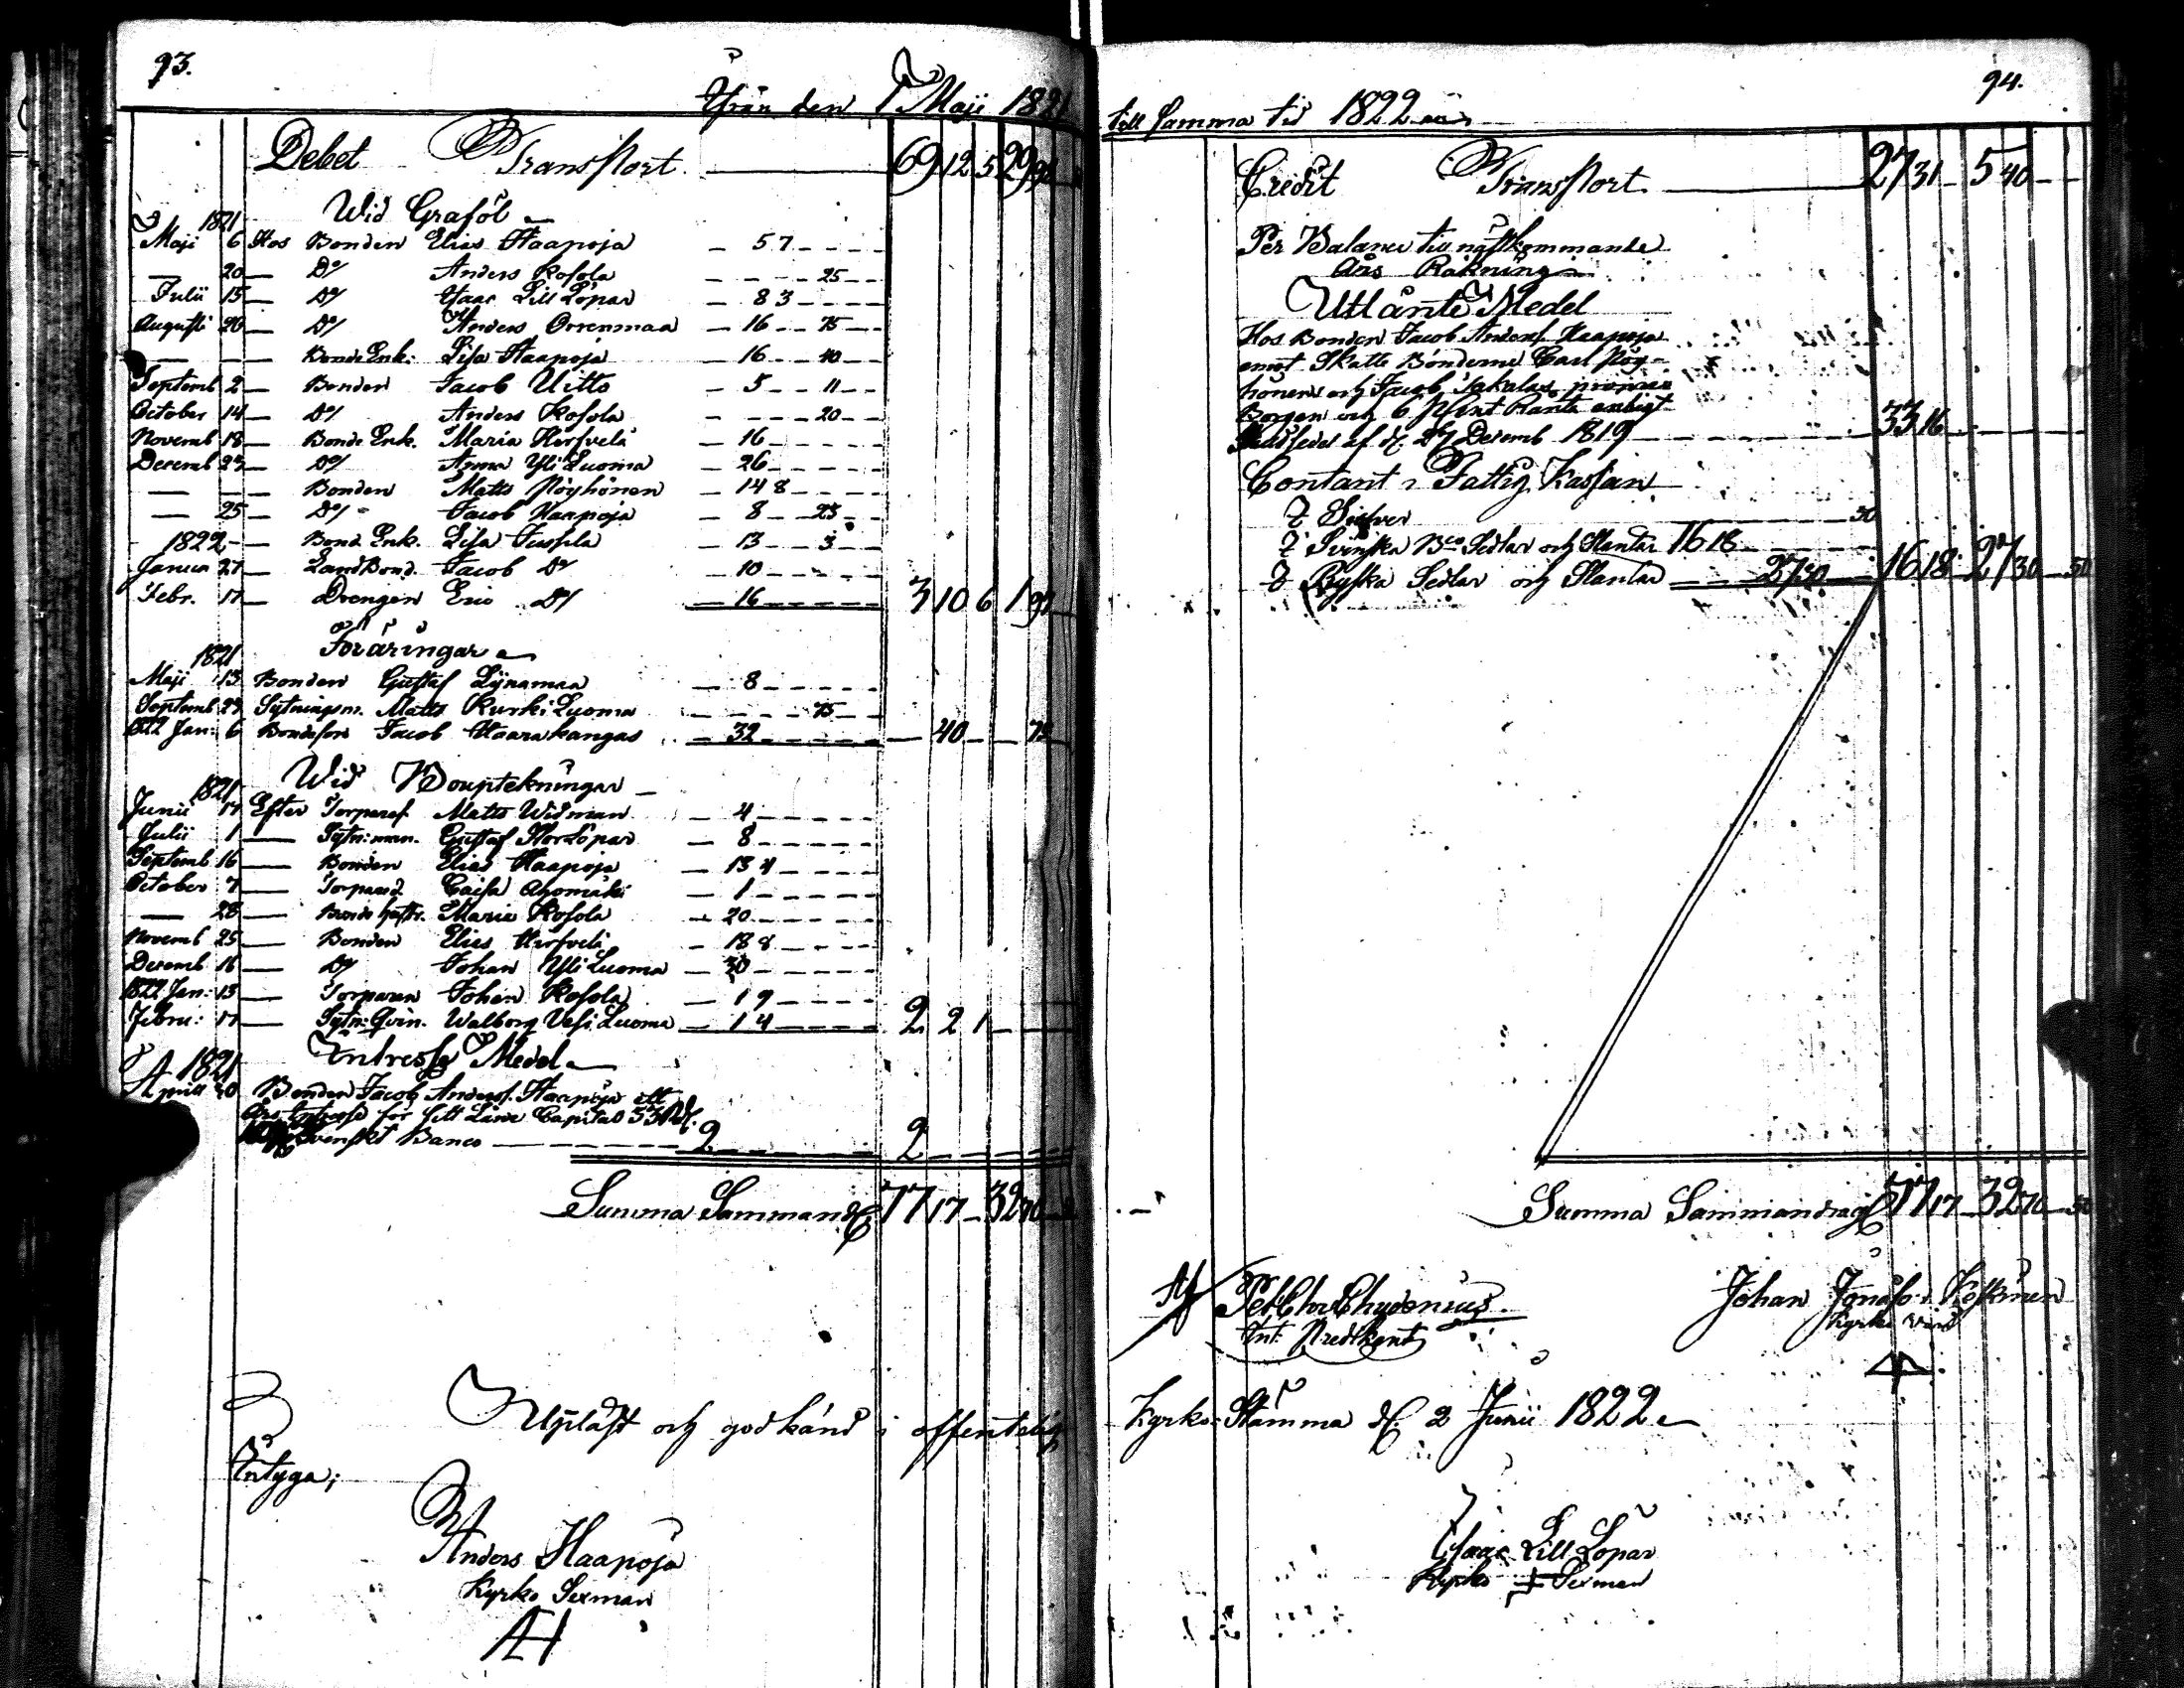 93.
Ifrån den 1 Maji 1821
Debet Transport 69 12 5 29 98
Wid Graföl
1821
Maji 6 Hos Bonden Elias Haapoja 5 7
20 Do Anders Kosola 25
Julii 15 Do Isaac Lill Löpar 8 3
Augusti 26 Do Anders Orrenmaa 16 75
Bonde Enk: Lisa Haapoja 16 40
Septemb 2 Bonden Jacob Uitto 5 11
October 14 Do Anders Kosola 20
Novemb 18 Bonde Enk. Maria Hirfvelä 16
Decemb 23 Do Anna Yli Luoma 26
Bonden Matts Pöyhönen 14 8
25 Do Jacob Haapoja 8 25
1822 Bond. Enk. Lisa Jussila 13 3
Janua 27 Landbond. Jacob Do 10
Febr. 17 Drengen Eric Do 16 3 10 6 1 99
Föräringar
1821
Maji 13 Bonden Gustaf Lÿnamaa 8
Septemb 23 Sytningsm. Matts Kurki Luoma 75
1822 Jan: 6 Bondeson Jacob Haarakangas 32 40 75
Wid Bouptekningar
1821
Junii 17 Efter Torparen Matts Widman 4
Julii 1 Sytn: man. Gustaf Stor Löpar 8
Septemb 16 Bonden Elias Haapoja 13 4
October 7 Torpared. Caisa Ahomäki 1
28 Bonde hustr. Maria Kosola 20
Novemb 25 Bonden Elias Hirfvelä 18 8
Decemb 16 Do Johan Yli Luoma 30
1822 Jan: 13 Torparen Johan Kosola 1 9
Febru: 17 Sytn: Qvin. Walborg Vesi Luoma 1 4 2 2 1
Intresse Medel
1821
April 30 Bonden Jacob Anderss. Haapoja ett
Års Intresse för sitt Låne Capital 33 Rd.
Svenskt Banco 2 2
Summa Sammandr 77 17 32 70
Upläst och godkänd i offentelig
Intyga;
Anders Haapoja
Kyrko Sexman
AH
94.
till samma tid 1822
Credit Transport 27 31 5 40
Per Balance till nästkommande
Års Räkning
Utlänte Medel
Hos Bonden Jacob Anderss. Haapoja
emot Skatte Bönderne Carl Pöy-
hönens och Jacob Jakalas
Borgen och 6 pCent Ränta enligt
Skuldsedel af d. 27 Decemb 1819 33 16
Contant i Fattig Kassan
I Silfver 50
I Svenska Bco Sedlar och Slantar 16 18
I Ryska Sedlar och Slantar 27 30 16 18 27 30 50
Summa Sammandrag 77 17 32 70 50
Pet Chr Chydenius
Int: Predikant
Johan Jonass: Koskinen
Kyrko Värd
Kyrko: Stämma d. 2 Junii 1822
Isaac Lill Löpar
Kyrko Sexman